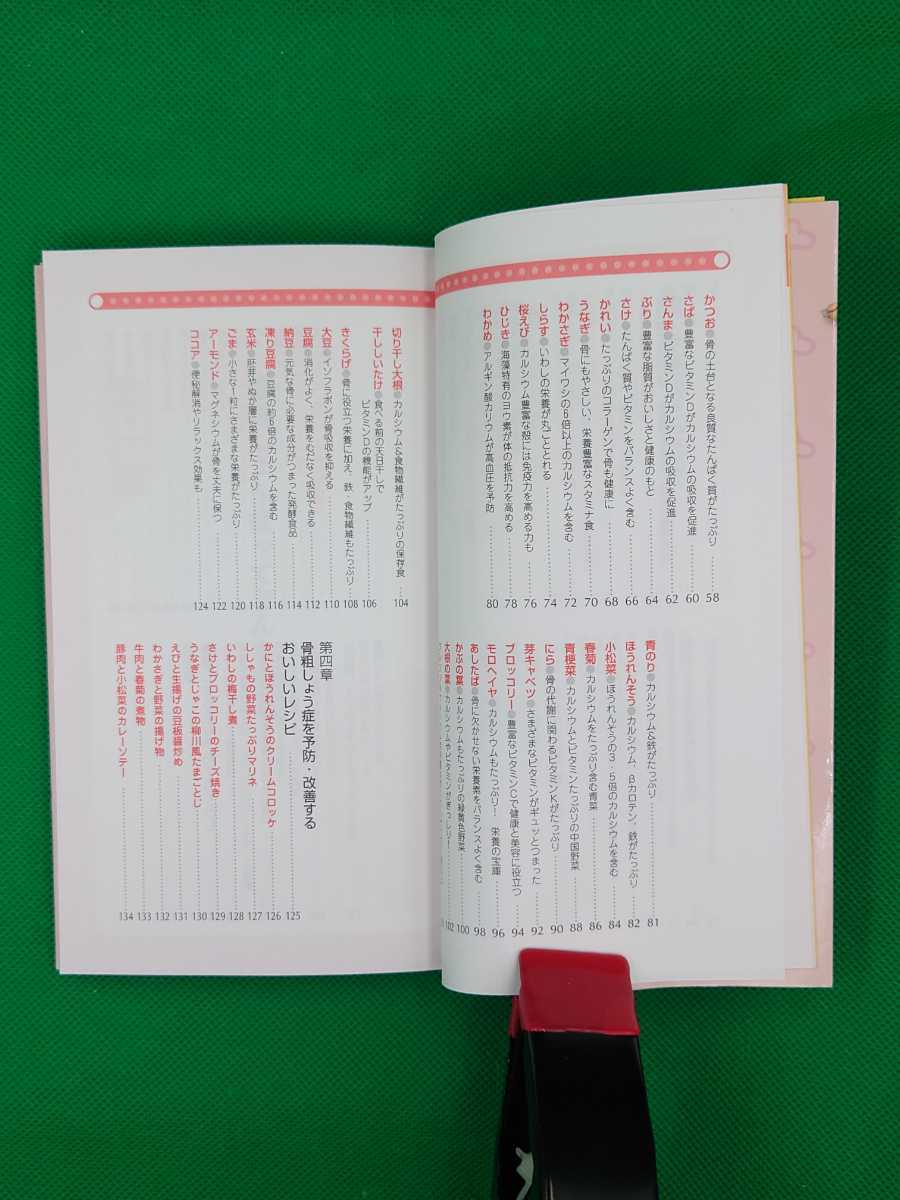 かつお●骨の土台となる良質なたんぱく質がたっぷり……58
さば●豊富なビタミンDがカルシウムの吸収を促進……60
さんま●ビタミンDがカルシウムの吸収を促進……62
ぶり●豊富な脂質がおいしさと健康のもと……64
さけ●たんぱく質やビタミンをバランスよく含む……66
かれい●たっぷりのコラーゲンで骨も健康に……68
うなぎ●骨にもやさしい、栄養豊富なスタミナ食……70
わかさぎ●マイワシの6倍以上のカルシウムを含む……72
しらす●いわしの栄養が丸ごととれる……74
桜えび●カルシウム豊富な殻には免疫力を高める力も……76
ひじき●海藻特有のヨウ素が体の抵抗力を高める……78
わかめ●アルギン酸カリウムが高血圧を予防……80
青のり●カルシウム&鉄がたっぷり……81
ほうれんそう●カルシウム、βカロテン、鉄がたっぷり……82
小松菜●ほうれんそうの3・5倍のカルシウムを含む……84
春菊●カルシウムをたっぷり含む青菜……86
青梗菜●カルシウムとビタミンたっぷりの中国野菜……88
にら●骨の代謝に関わるビタミンKがたっぷり……90
芽キャベツ●さまざまなビタミンがギュッとつまった……92
ブロッコリー●豊富なビタミンCで健康と美容に役立つ……94
モロヘイヤ●カルシウムもたっぷり! 栄養の宝庫……96
あしたば●骨に欠かせない栄養素をバランスよく含む……98
かぶの葉●カルシウムもたっぷりの緑黄色野菜……100
大根の葉●カルシウムやビタミンがぎっしり!……102
切り干し大根●カルシウム&食物繊維がたっぷりの保存食……104
干ししいたけ●食べる前の天日干しで
ビタミンDの機能がアップ……106
きくらげ●骨に役立つ栄養に加え、鉄、食物繊維もたっぷり……108
大豆●イソフラボンが骨吸収を抑える……110
豆腐●消化がよく、栄養をむだなく吸収できる……112
納豆●元気な骨に必要な成分がつまった発酵食品……114
凍り豆腐●豆腐の約6倍のカルシウムを含む……116
玄米●胚芽やぬか層に栄養がたっぷり……118
ごま●小さな1粒にさまざまな栄養がたっぷり……120
アーモンド●マグネシウムが骨を丈夫に保つ……122
ココア●便秘解消やリラックス効果も……124
第四章
骨粗しょう症を予防・改善する
おいしいレシピ……125
かにとほうれんそうのクリームコロッケ……126
ししゃもの野菜たっぷりマリネ……127
いわしの梅干し煮……128
さけとブロッコリーのチーズ焼き……129
うなぎとじゃこの柳川風たまごとじ……130
えびと生揚げの豆板醤炒め……131
わかさぎと野菜の揚げ物……132
牛肉と春菊の煮物……133
豚肉と小松菜のカレーソテー……134